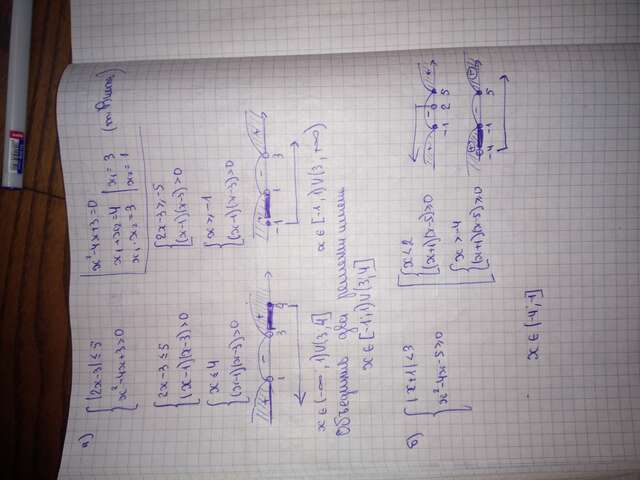 а) { |2x-3| ≤ 5
{ x²-4x+3>0
x²-4x+3=0
x₁+x₂=4 | x₁=3
x₁·x₂=3 | x₂=1 (т. Виета)
{ 2x-3 ≤ 5
{ (x-1)(x-3)>0
{ 2x-3 ≥ -5
{ (x-1)(x-3)>0
{ x ≤ 4
{ (x-1)(x-3)>0
{ x ≥ -1
{ (x-1)(x-3)>0
+ - +
1 3 4
+ - +
-1 1 3
x ∈ (-∞, 1) U (3, 4]
x ∈ [-1, 1) U (3, +∞)
Объединить два решения имеем
x ∈ [-1, 1) U (3, 4]
б) { |x+1| < 3
{ x²-4x-5 ≥ 0
[ { x < 2
{ (x+1)(x-5) ≥ 0
{ x > -4
{ (x+1)(x-5) ≥ 0
+ - +
-1 2 5
+ - +
-4 -1 5
x ∈ (-4; -1]